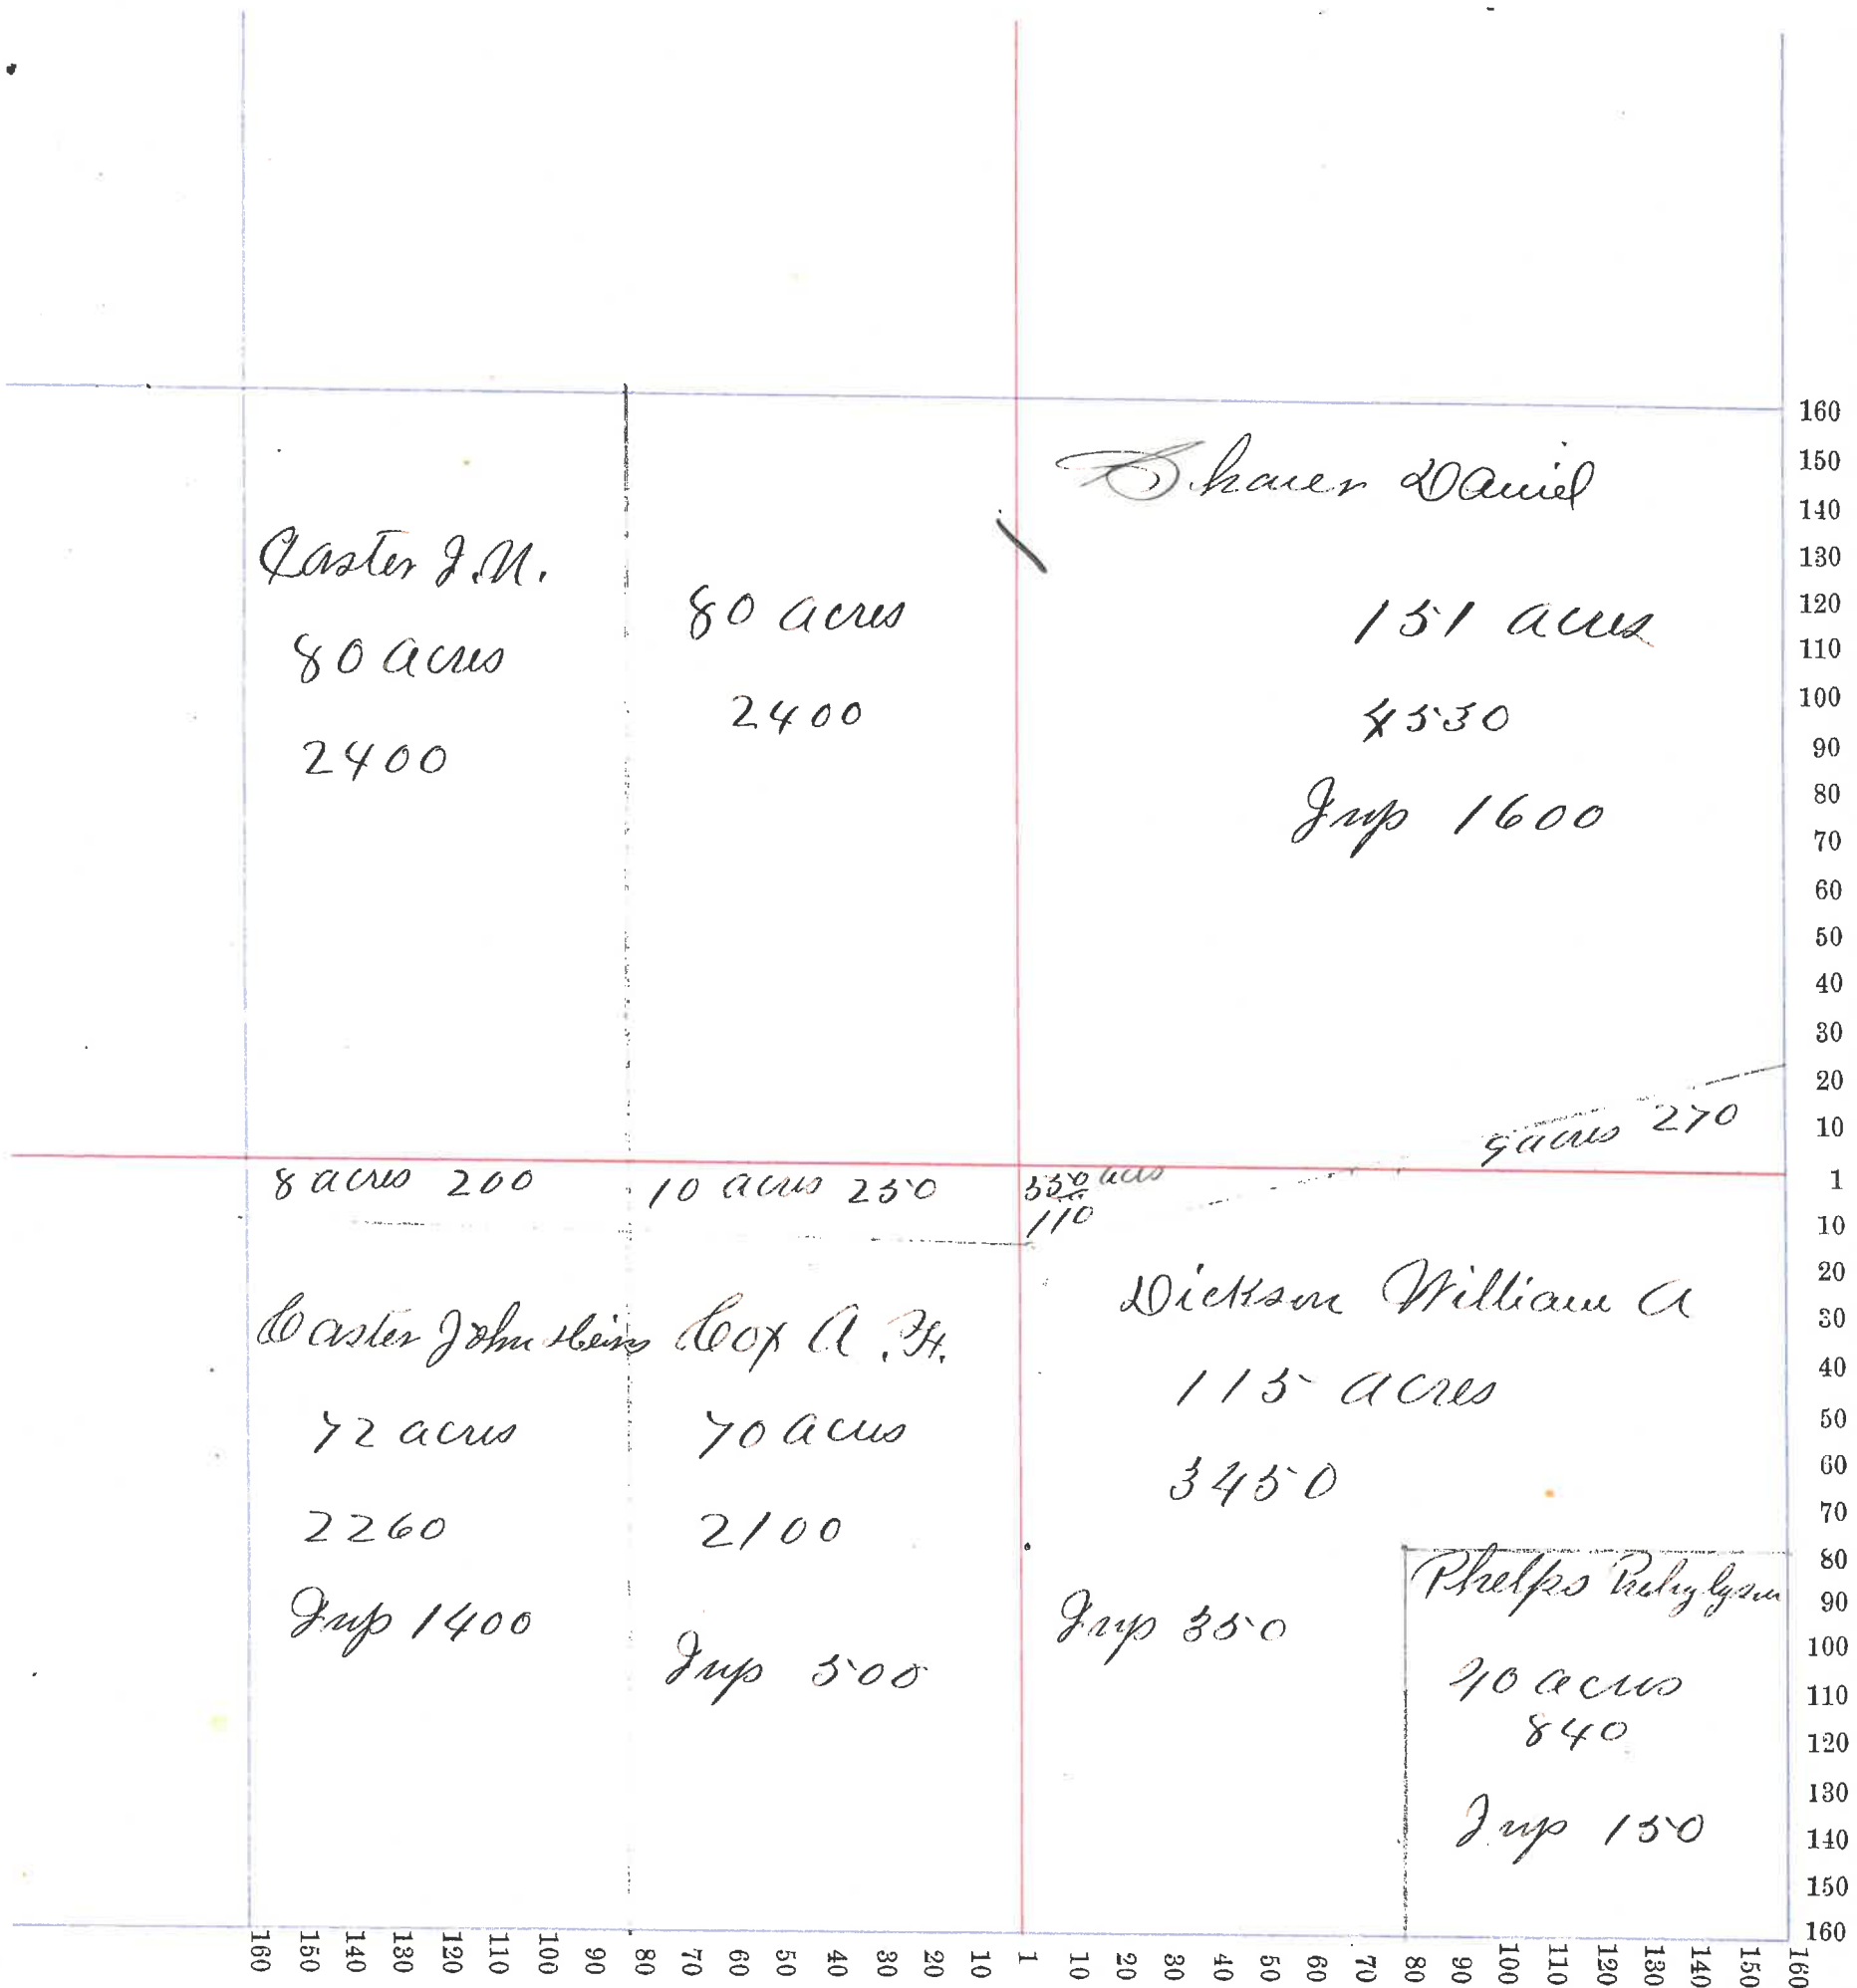 Caster J. N.
80 acres
2400
80 acres
2400
Shaver Daniel
151 acres
4530
Imp 1600
9 acres 270
8 acres 200
10 acres 250
acres
110
Caster John Heirs
72 acres
2260
Imp 1400
Cox A. H.
70 acres
2100
Imp 500
Dickson William A
115 acres
3450
Imp 350
Phelps
40 acres
840
Imp 150
160
150
140
130
120
110
100
90
80
70
60
50
40
30
20
10
1
10
20
30
40
50
60
70
80
90
100
110
120
130
140
150
160
160 150 140 130 120 110 100 90 80 70 60 50 40 30 20 10 1 10 20 30 40 50 60 70 80 90 100 110 120 130 140 150 160